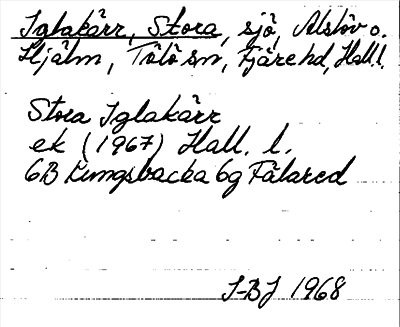 Iglakärr, Stora, sjö, Alslöv o.
Hjälm, Tölö sn, Fjäre hd, Hall. l.
Stora Iglakärr
ek (1967) Hall. l.
6B Kungsbacka 6g Fälared
J-BJ 1968